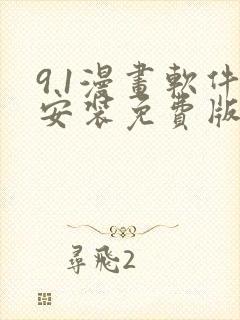 9.1漫畫軟件
安裝免費版
尋飛2